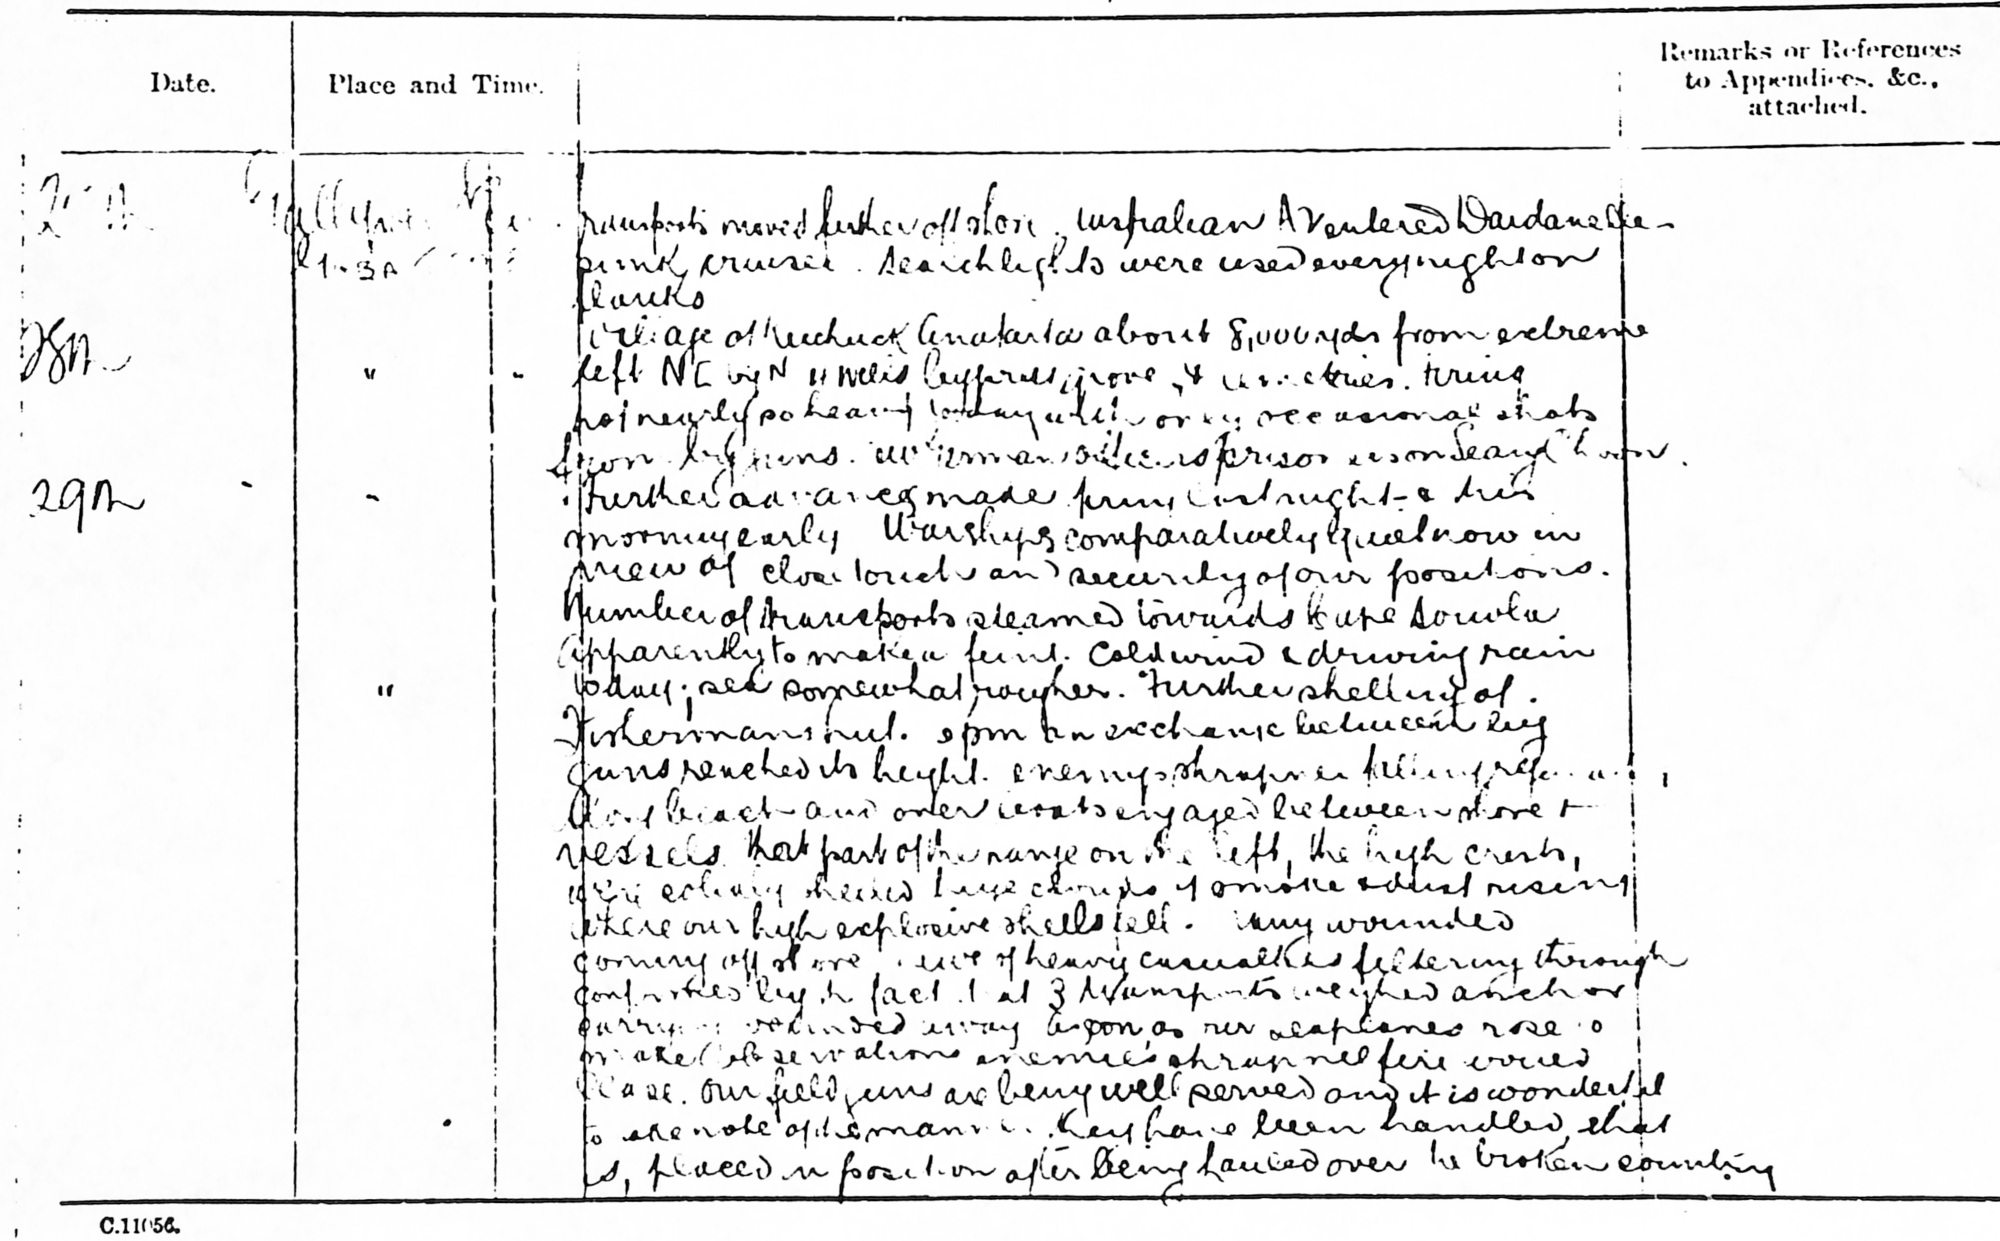 Date.
Place and Time.
Remarks or References
to Appendices, &c.,
attached.
Transports moved further off shore. Australian AV entered Dardanelles
sunk cruiser. Searchlights were used every night on
flanks
28th
Village of Kuchuck Anafarta about 8,000 yds from extreme
" "
left NE by N Cypress grove & cemeteries. Firing
not nearly so heavy today with only occasional shots
from big guns. German officers prisoners on
29th - -
Further advances made last night & this
morning early Warships comparatively quiet now in
view of close touch and security of our positions.
Number of transports steamed towards Souvla
"
apparently to make a feint. Cold wind & driving rain
today; sea somewhat rougher. Further shelling of
Fishermans hut. pm an exchange between big
guns reached its height. enemys shrapnel falling
along beach and over boats engaged between shore +
vessels. that part of the range on the left, the high crests,
were shelled huge clouds of smoke & dust rising
where our high explosive shells fell. Many wounded
coming off shore. of heavy casualties filtering through
confirmed by the fact that 3 transports weighed anchor
carrying wounded away as soon as our seaplanes rose to
make observations enemies shrapnel fire would
cease. Our field guns are being well served and it is wonderful
to note of the manner they have been handled, that
is, placed in position after being hauled over the broken country
C.11056.